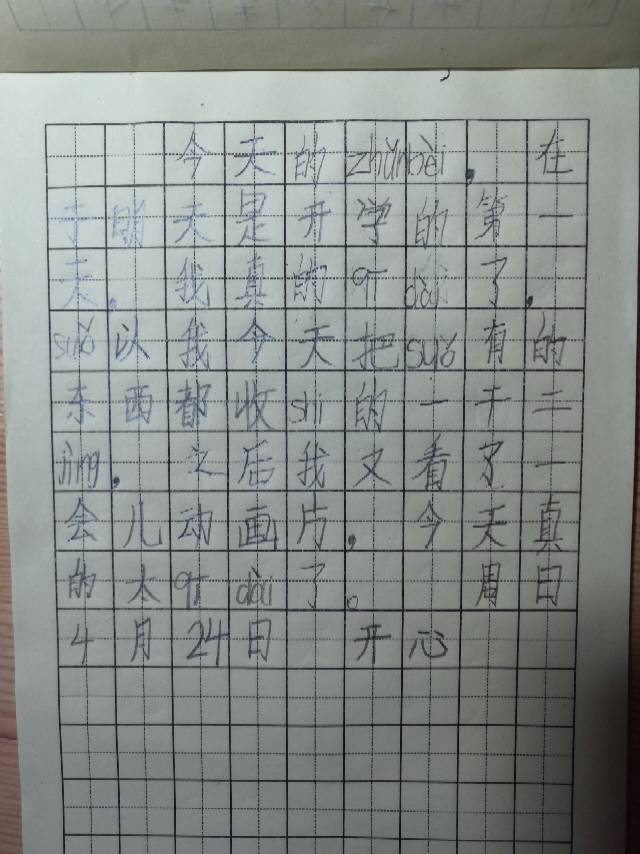 今天的zhǔnbèi，在
于明天是开学的第一
天，我真的qī dài了，
suǒ以我今天把suǒ有的
东西都收shi的一干二
jìng，之后我又看了一
会儿动画片，今天真
的太qī dài了。周日
4月24日 开心